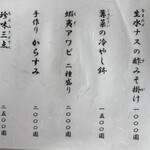 生水ナスの酢みそ掛け 一〇〇〇円
蓴菜の冷やし鉢 一五〇〇円
蝦夷アワビ 二種盛り 二〇〇〇円
手作り からすみ 二〇〇〇円
珍味三点 二五〇〇円